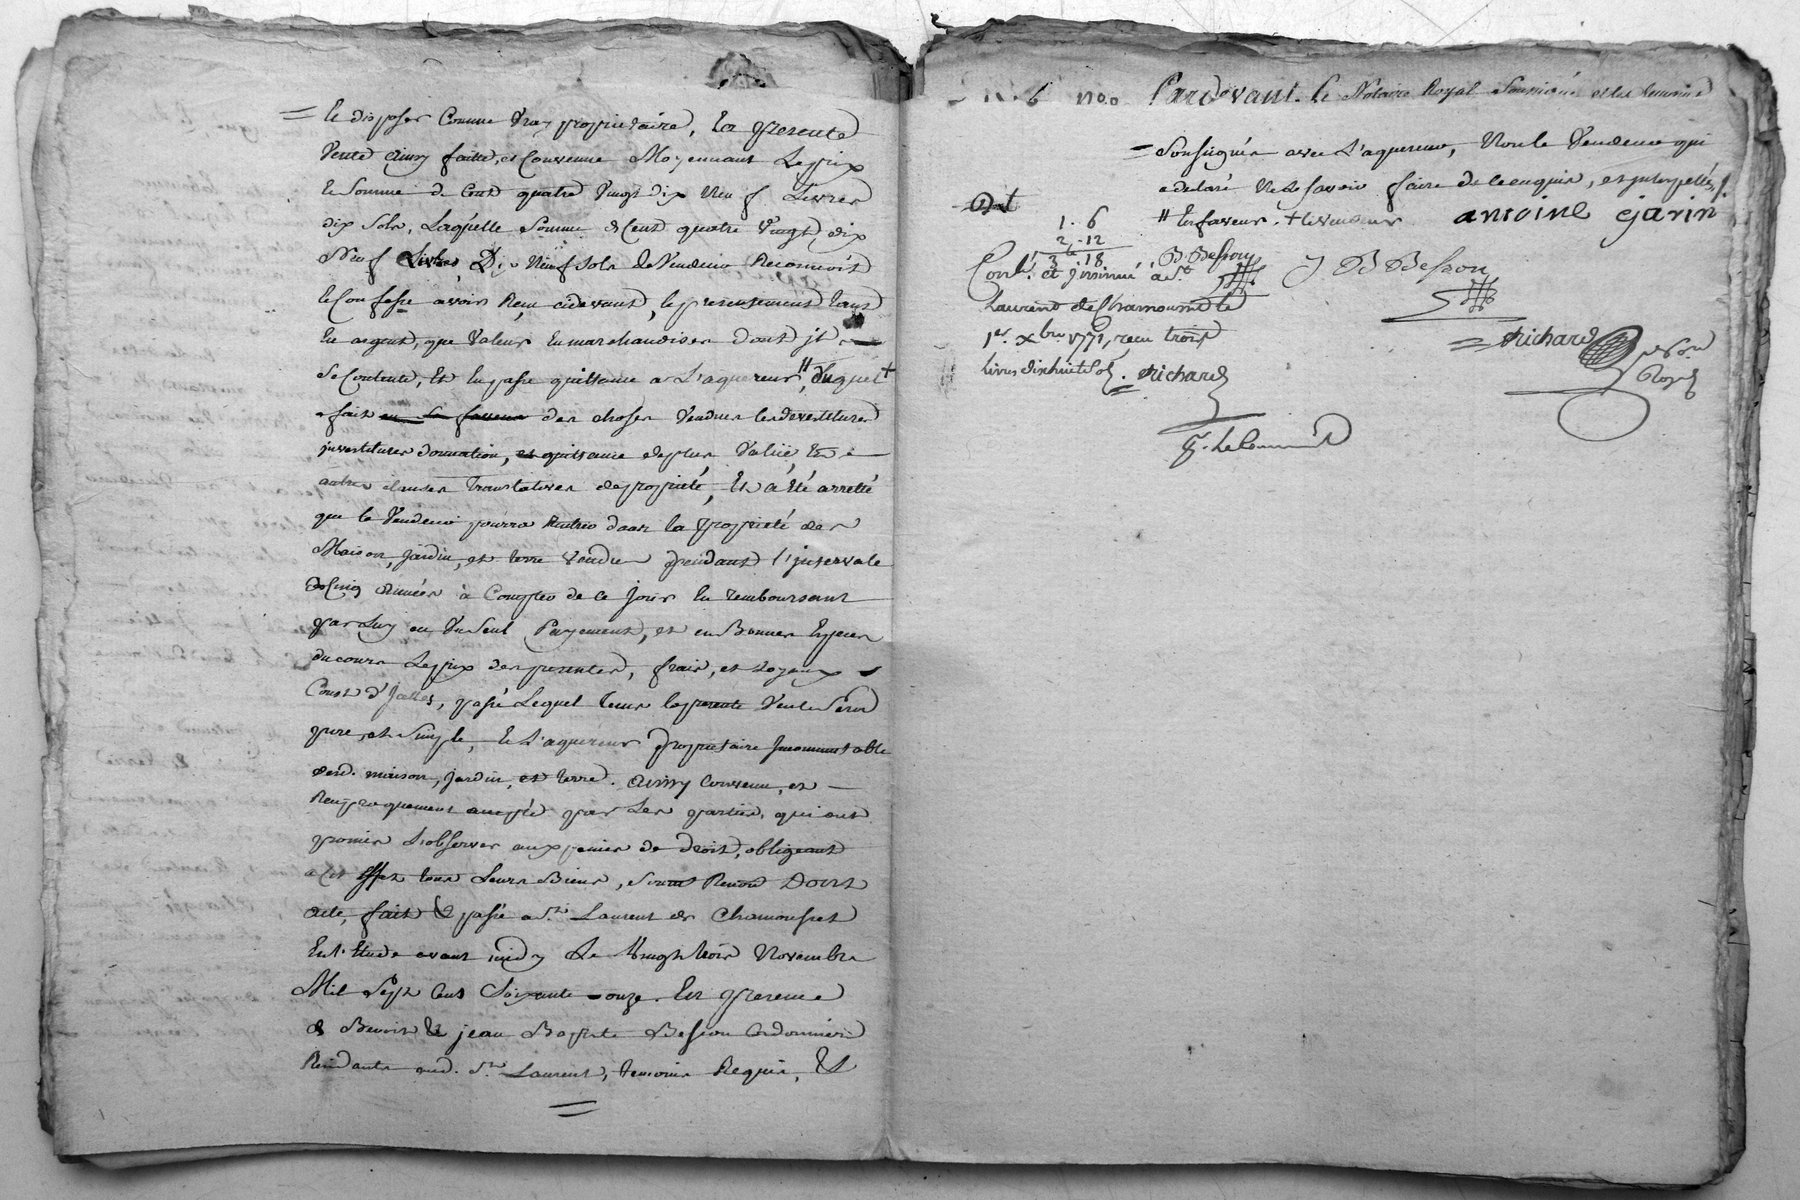 et disposer Comme Vray proprietaire, La presente
Vente Ainsy faitte, et Convenue Moyennant Le prix
et Somme de Cent quatre Vingt dix Neuf Livres
dix Sols, Laquelle Somme de Cent quatre Vingt dix
Neuf Livres Dix Neuf Sols le Vendeur Reconnoit
et Confesse avoir Reçu cidevant, et presentement tant
en argent, que Valeur en marchandises dont il
Se Contente, Et En passe quittance a L'aquereur # duquel +
fait en sa faveur des choses Vendues les devestitures
investitures donnation, et quittance de plus Valüe, Et
autres clauses Translatives de proprieté, Et a été arretté
que le Vendeur pourra Rentrer dans la proprieté des
Maison, jardin, et terre Vendue pendant l'intervale
de Cinq Années à Compter de ce jour En remboursant
par Luy en Un Seul Payement, et en Bonnes Especes
du cours Le prix des presentes, frais, et Loyaux
Cout d'jcelles, passé Lequel tems la presente Vente Sera
pure et Simple, et L'aquereur proprietaire Jncommutable
desd. maison, jardin, et terre. Ainsy Convenu, et
Reciproquement accepté par Les parties, qui ont
promis L'observer aux peines de droit, obligeant
a cet effet tous Leurs Biens, Dont
acte, fait & passé a St. Laurent de Chamousset
En L'Etude avant midy Le Vingt trois Novembre
Mil Sept Cent Soixante onze. En presence
de Benoit & jean Baptiste Besson Cordonniers
Residants aud. St. Laurent, temoins Requis, &
Pardevant Le Notaire Royal Soussigné et les temoins
Soussignés avec L'aquereur, Non le Vendeur qui
a declaré Ne le Savoir faire de ce enquis, et interpellé
# En faveur. + le vendeur antoine Garin
1. 6
2. 12
3. 18.
B. Besson J B Besson
Conlé. et jnsinué a St.
Laurent de Chamousset le
1er. Xbre 1771, recu trois
livres dix huit sols. Richard
Richard
Royal